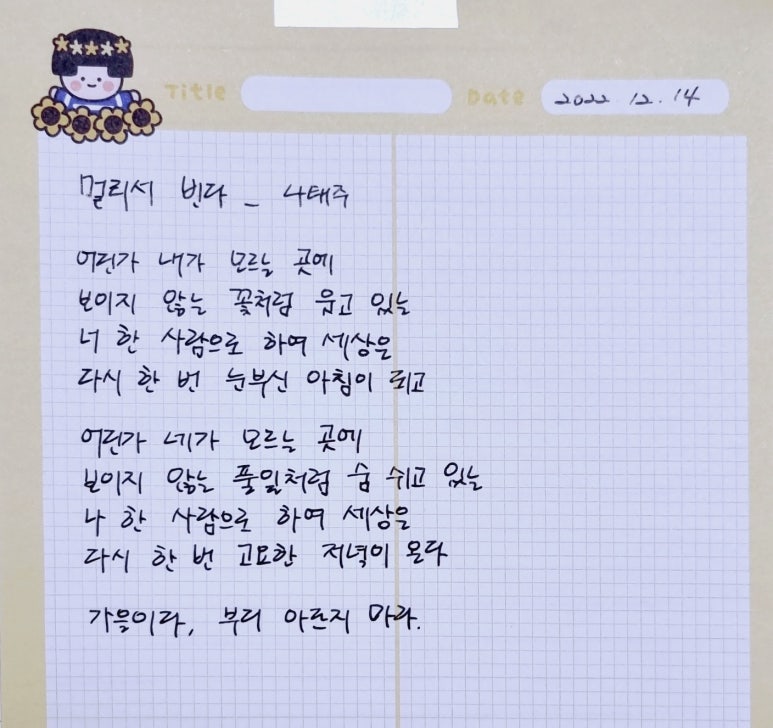 Title
Date 2022. 12. 14
멀리서 빈다 _ 나태주
어딘가 내가 모르는 곳에
보이지 않는 꽃처럼 웃고 있는
너 한 사람으로 하여 세상은
다시 한 번 눈부신 아침이 되고
어딘가 네가 모르는 곳에
보이지 않는 풀잎처럼 숨 쉬고 있는
나 한 사람으로 하여 세상은
다시 한 번 고요한 저녁이 온다
가을이다, 부디 아프지 마라.